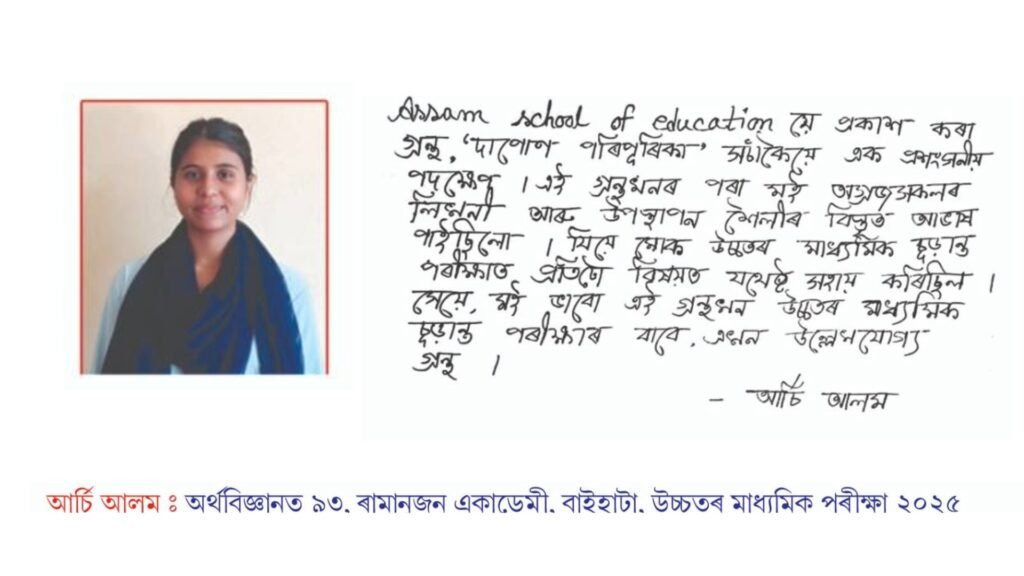 Assam school of education য়ে প্ৰকাশ কৰা
গ্ৰন্থ, 'দাপোণ পৰিপূৰিকা' সঁচাকৈয়ে এক প্ৰশংসনীয়
পদক্ষেপ । এই গ্ৰন্থখনৰ পৰা মই অগ্ৰজসকলৰ
লিখনী আৰু উপস্থাপন শৈলীৰ বিস্তৃত আভাষ
পাইছিলো । যিয়ে মোক উচ্চতৰ মাধ্যমিক চূড়ান্ত
পৰীক্ষাত প্ৰতিটো বিষয়ত যথেষ্ট সহায় কৰিছিল ।
সেয়ে, মই ভাবো এই গ্ৰন্থখন উচ্চতৰ মাধ্যমিক
চূড়ান্ত পৰীক্ষাৰ বাবে, এখন উল্লেখযোগ্য
গ্ৰন্থ ।
– আৰ্চি আলম
আৰ্চি আলম : অৰ্থবিজ্ঞানত ৯৩, ৰামানজন একাডেমী, বাইহাটা, উচ্চতৰ মাধ্যমিক পৰীক্ষা ২০২৫